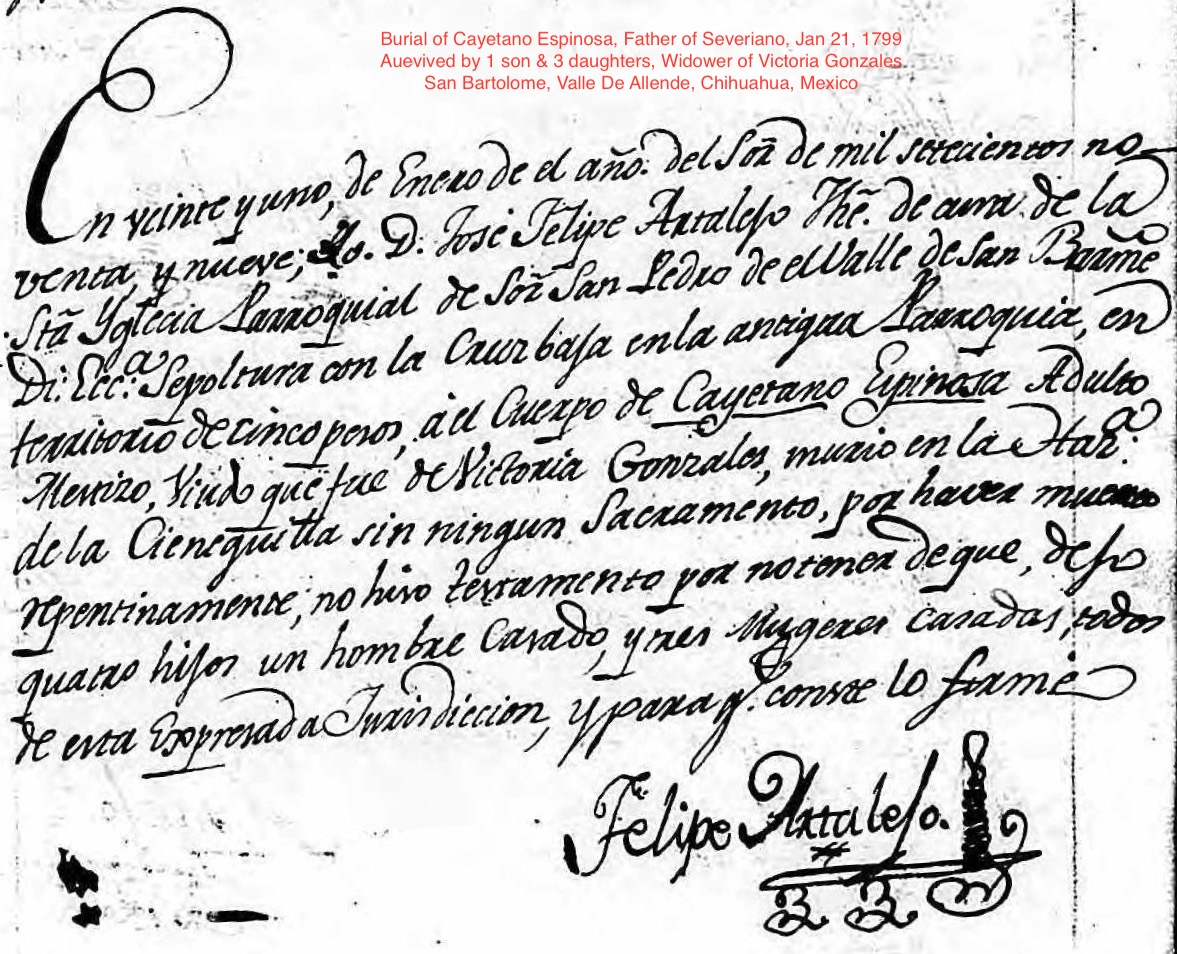 Burial of Cayetano Espinosa, Father of Severiano, Jan 21, 1799
Auevived by 1 son & 3 daughters, Widower of Victoria Gonzales.
San Bartolome, Valle De Allende, Chihuahua, Mexico
En veinte y uno, de Enero de el año. del Sor̃ de mil setecientos no-
venta, y nueve; Yo. D. José Felipe Artalejo Thẽ. de cura de la
Stã Yglecia Parroquial de Sor̃ San Pedro de el Valle de San Bar̃me
Di: Ecc:ª Sepoltura con la Cruz baja en la antigua Parroquia, en
territorio de cinco pesos, á el Cuerpo de Cayetano Espinosa Adulto
Mestizo, Viudo que fue de Victoria Gonzales, murio en la Haz:ª
de la Cieneguilla sin ningun Sacramento, por haver muerto
repentinamente, no hiso testamento por no tener de que, dejo
quatro hijos un hombre Casado, y tres Mugeres casadas, todos
de esta Expresada Jurisdiccion, y para q.e conste lo firmé
Felipe Artalejo.